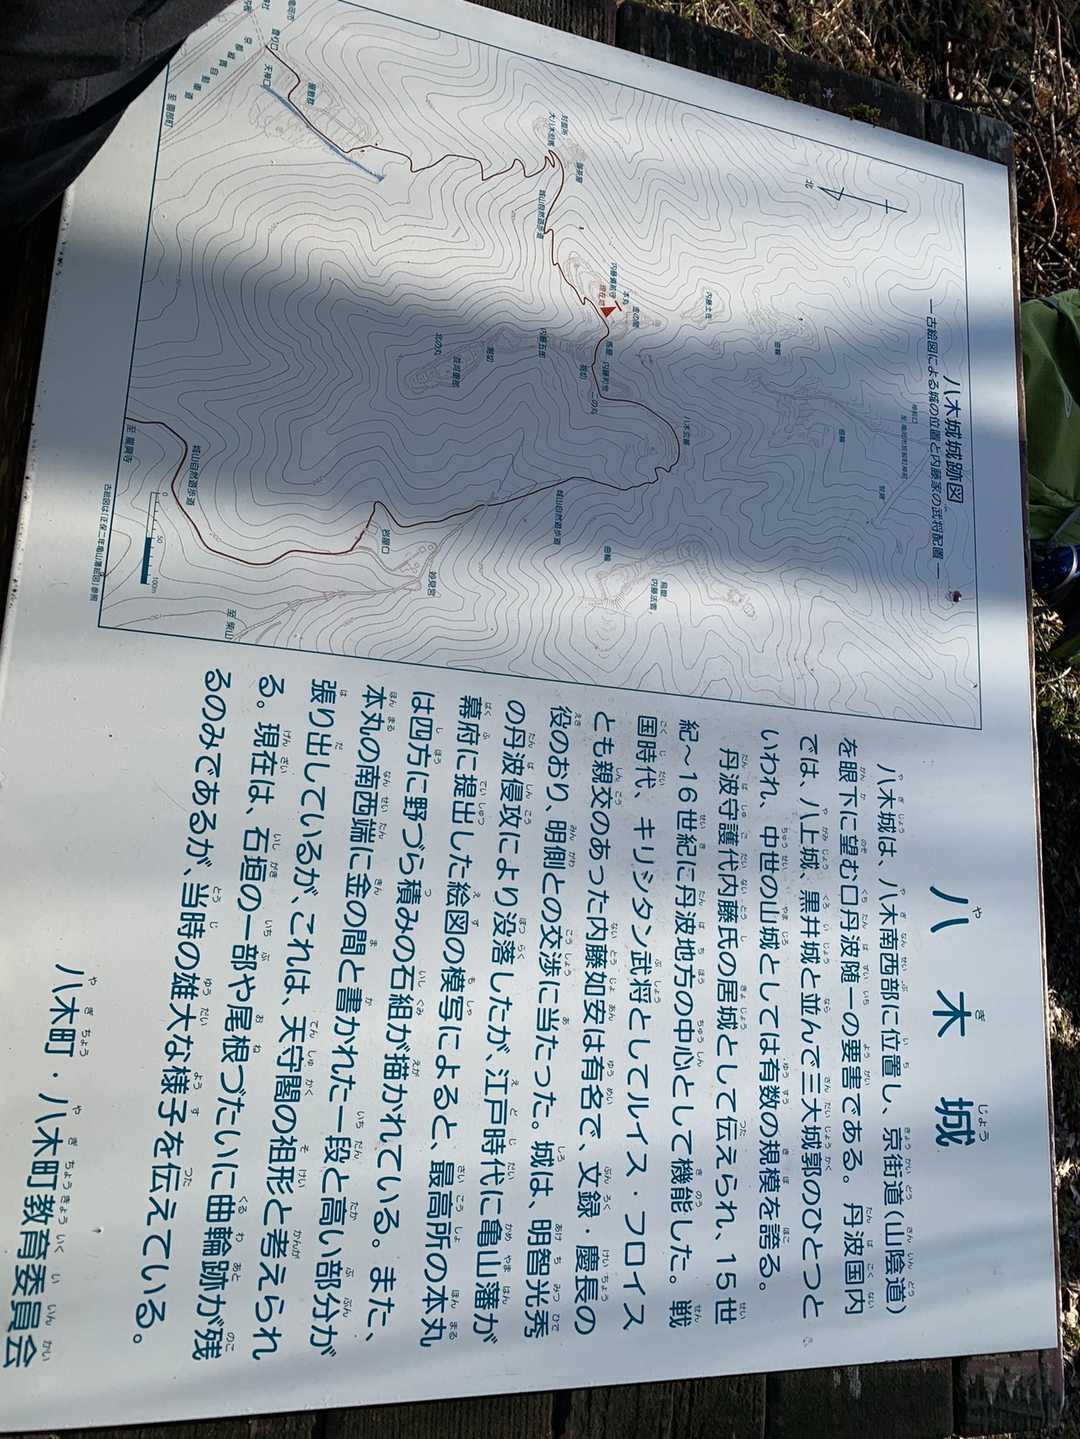 八木城
八木城は、八木南西部に位置し、京街道(山陰道)
を眼下に望む口丹波随一の要害である。丹波国内
では、八上城、黒井城と並んで三大城郭のひとつと
いわれ、中世の山城としては有数の規模を誇る。
丹波守護代内藤氏の居城として伝えられ、15世
紀〜16世紀に丹波地方の中心として機能した。戦
国時代、キリシタン武将としてルイス・フロイス
とも親交のあった内藤如安は有名で、文録・慶長の
役のおり、明側との交渉に当たった。城は、明智光秀
の丹波侵攻により没落したが、江戸時代に亀山藩が
幕府に提出した絵図の模写によると、最高所の本丸
は四方に野づら積みの石組が描かれている。また、
本丸の南西端に金の間と書かれた一段と高い部分が
張り出しているが、これは、天守閣の祖形と考えられ
る。現在は、石垣の一部や尾根づたいに曲輪跡が残
るのみであるが、当時の雄大な様子を伝えている。
八木町・八木町教育委員会
八木城城跡図
―古絵図による城の位置と内藤家の武将配置―
北
登り口
天神口
屋敷群
京都縦貫自動車道
至 園部町
対面所
大八木但馬
御茶屋
城山自然遊歩道
内藤備前守
現在地
本丸
金の間
内藤土佐
曲輪
馬屋
内藤和泉
二の丸
堀切
内藤五郎
堀切
北の丸
八木玄蕃
曲輪
城山自然遊歩道
曲輪
烏嶽
内藤法雲
岩屋口
妙見宮
至 柴山
城山自然遊歩道
至 龍興寺
0 50 100m
古絵図は「正保二年亀山藩絵図」参照